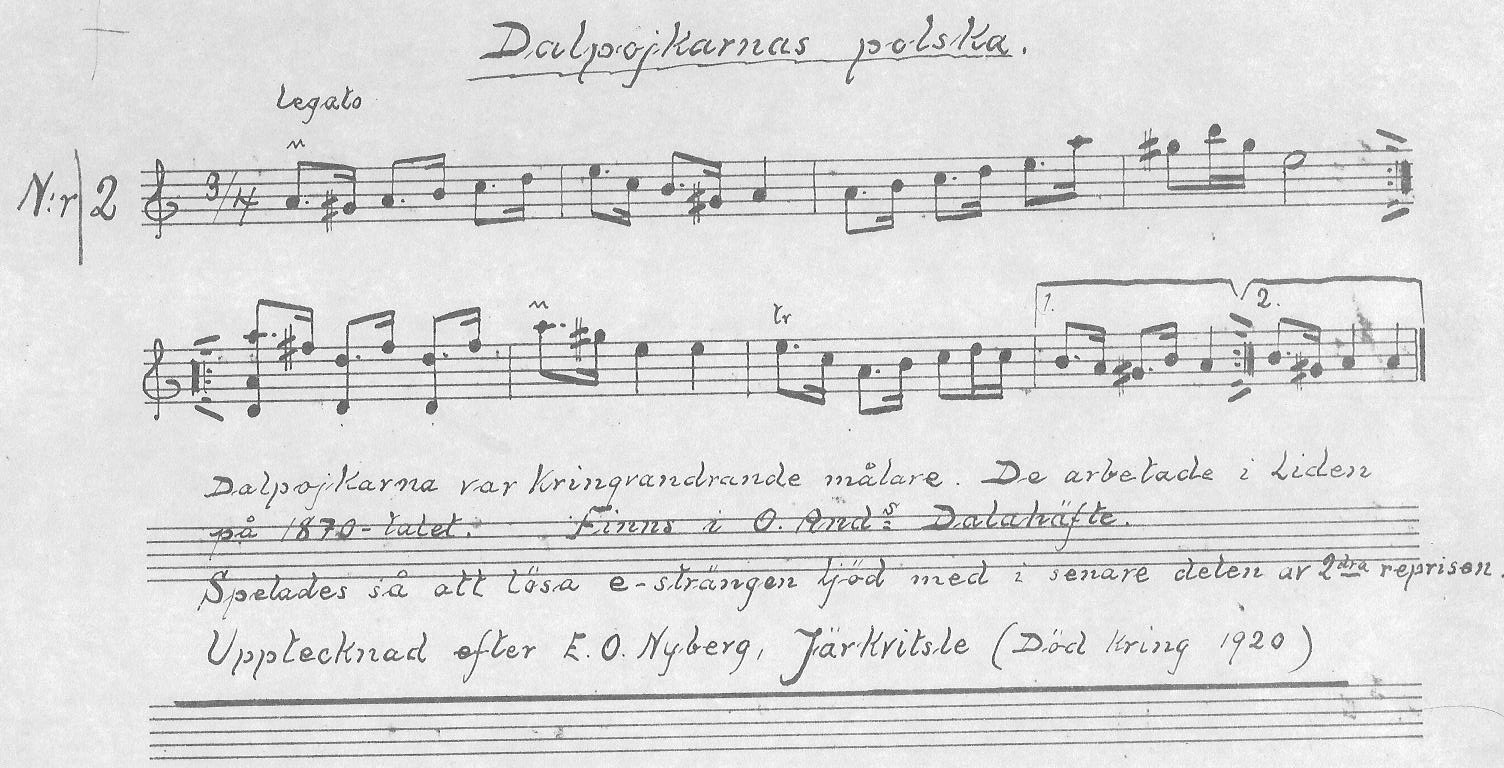 Dalpojkarnas polska.
Legato
N:r 2
3/4
tr
1.
2.
Dalpojkarna var kringvandrande målare. De arbetade i Liden
på 1870-talet. Finns i O. And:s Dalahäfte.
Spelades så att lösa e-strängen ljöd med i senare delen av 2dra reprisen.
Upptecknad efter E. O. Nyberg, Järkvitsle (Död kring 1920)